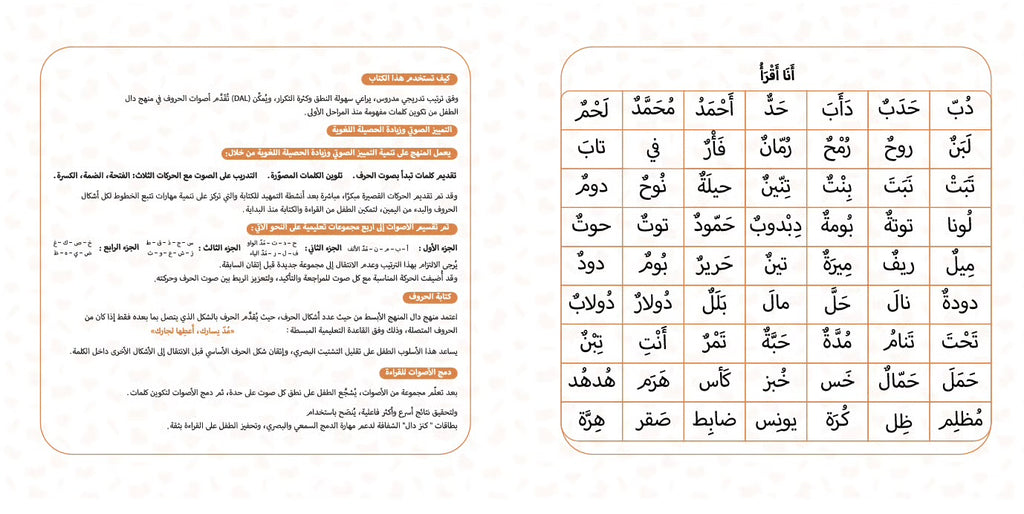 أَنَا أَقْرَأُ
دُبّ حَدَبٌ دَأَبَ حَدٌّ أَحْمَدُ مُحَمَّدٌ لَحْمٌ
لَبَنٌ روحٌ رُمْحٌ رُمّانٌ فَأْرٌ في تابَ
تَبَتْ نَبَتَ بِنْتٌ تِنّينٌ حيلَةٌ نُوحٌ دومٌ
لُونا توتةٌ بُومَةٌ دِبْدوبٌ حَمّودٌ توتٌ حوتٌ
مِيلٌ ريفٌ مِيرَةٌ تينٌ حَريرٌ بُومٌ دودٌ
دودةٌ نالَ حَلَّ مالَ بَلَلٌ دُولارٌ دُولابٌ
تَحْتَ تَنامُ مُدَّةٌ حَبَّةٌ تَمْرٌ أَنْتِ تِبْنٌ
حَمَلَ حَمّالٌ خَس خُبز كَأس هَرَم هُدهُد
مُظلِم ظِل كُرَة يونِس ضابِط صَقر هِرَّة
كيف تستخدم هذا الكتاب
وفق ترتيب تدريجي مدروس، يراعي سهولة النطق وكثرة التكرار، ويُمكّن (DAL) تُقَدَّم أصوات الحروف في منهج دال
الطفل من تكوين كلمات مفهومة منذ المراحل الأولى.
التمييز الصوتي وزيادة الحصيلة اللغوية
يعمل المنهج على تنمية التمييز الصوتي وزيادة الحصيلة اللغوية من خلال:
تقديم كلمات تبدأ بصوت الحرف. تلوين الكلمات المصوّرة. التدريب على الصوت مع الحركات الثلاث: الفتحة، الضمة، الكسرة.
وقد تم تقديم الحركات القصيرة مبكرًا، مباشرة بعد أنشطة التمهيد للكتابة والتي تركز على تنمية مهارات تتبع الخطوط لكل أشكال
الحروف والبدء من اليمين، لتمكين الطفل من القراءة والكتابة منذ البداية.
تم تقسيم الأصوات إلى أربع مجموعات تعليمية على النحو الآتي:
الجزء الأول: أ – ب – م – ن – مَدّ الألف الجزء الثاني: ح – د – ت – مَدّ الواو ف – ل – ر – مَدّ الياء الجزء الثالث: س – ج – ذ – ق – ط ز – ش – ع – و – ث الجزء الرابع: خ – ص – ك – غ ض – ي – ه – ظ
يُرجى الالتزام بهذا الترتيب وعدم الانتقال إلى مجموعة جديدة قبل إتقان السابقة.
وقد أُضيفت الحركة المناسبة مع كل صوت للمراجعة والتأكيد، ولتعزيز الربط بين صوت الحرف وحركته.
كتابة الحروف
اعتمد منهج دال المنهج الأبسط من حيث عدد أشكال الحرف، حيث يُقدَّم الحرف بالشكل الذي يتصل بما بعده فقط إذا كان من
الحروف المتصلة، وذلك وفق القاعدة التعليمية المبسطة: «مُدّ يسارك، أعطِها لجارك»
يساعد هذا الأسلوب الطفل على تقليل التشتيت البصري، وإتقان شكل الحرف الأساسي قبل الانتقال إلى الأشكال الأخرى داخل الكلمة.
دمج الأصوات للقراءة
بعد تعلّم مجموعة من الأصوات، يُشجَّع الطفل على نطق كل صوت على حدة، ثم دمج الأصوات لتكوين كلمات.
ولتحقيق نتائج أسرع وأكثر فاعلية، يُنصَح باستخدام
بطاقات "كنز دال" الشفافة لدعم مهارة الدمج السمعي والبصري، وتحفيز الطفل على القراءة بثقة.